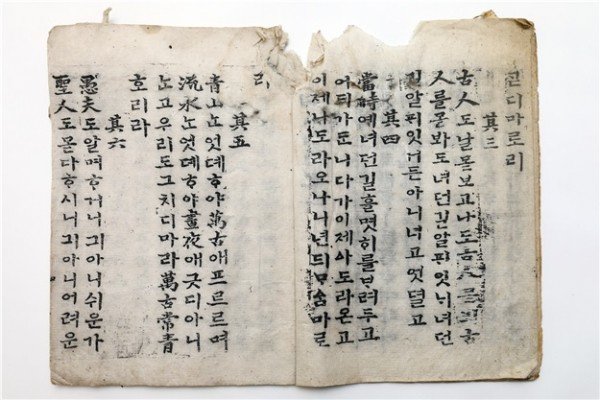 디마로리
其三
古人도날몯보고나도古人몯뵈古
人를몯봐도녀던길알ᄑᆡ잇ᄂᆡ녀던
길알ᄑᆡ잇거든아니녀고엇뎔고
其四
當時예녀던길흘몃ᄒᆡ를ᄇᆞ려두고
어듸가ᄃᆞᆫ니다가이제ᅀᅡ도라온고
이제나도라오나니년듸ᄆᆞᅀᆞᆷ마로
리
其五
靑山ᄂᆞᆫ엇뎨ᄒᆞ야萬古애프르르며
流水ᄂᆞᆫ엇뎨ᄒᆞ야晝夜애긋디아니
ᄂᆞᆫ고우리도그치디마라萬古常靑
호리라
其六
愚夫도알며ᄒᆞ거니긔아니쉬운가
聖人도몯다ᄒᆞ시니긔아니어려운